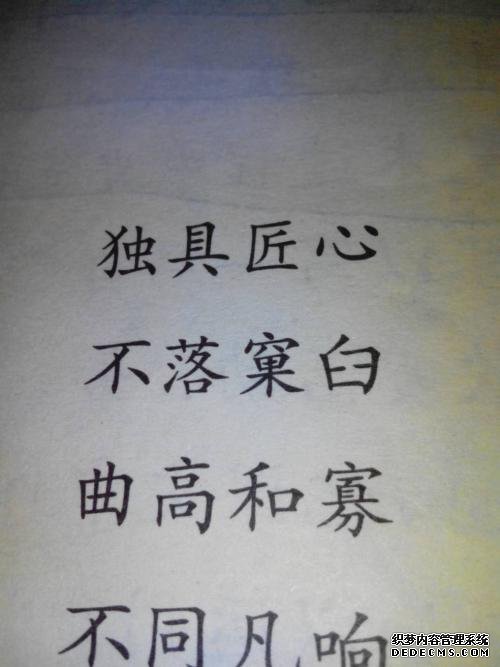 独具匠心
不落窠臼
曲高和寡
不同凡响
织梦内容管理系统
DEDECMS.COM